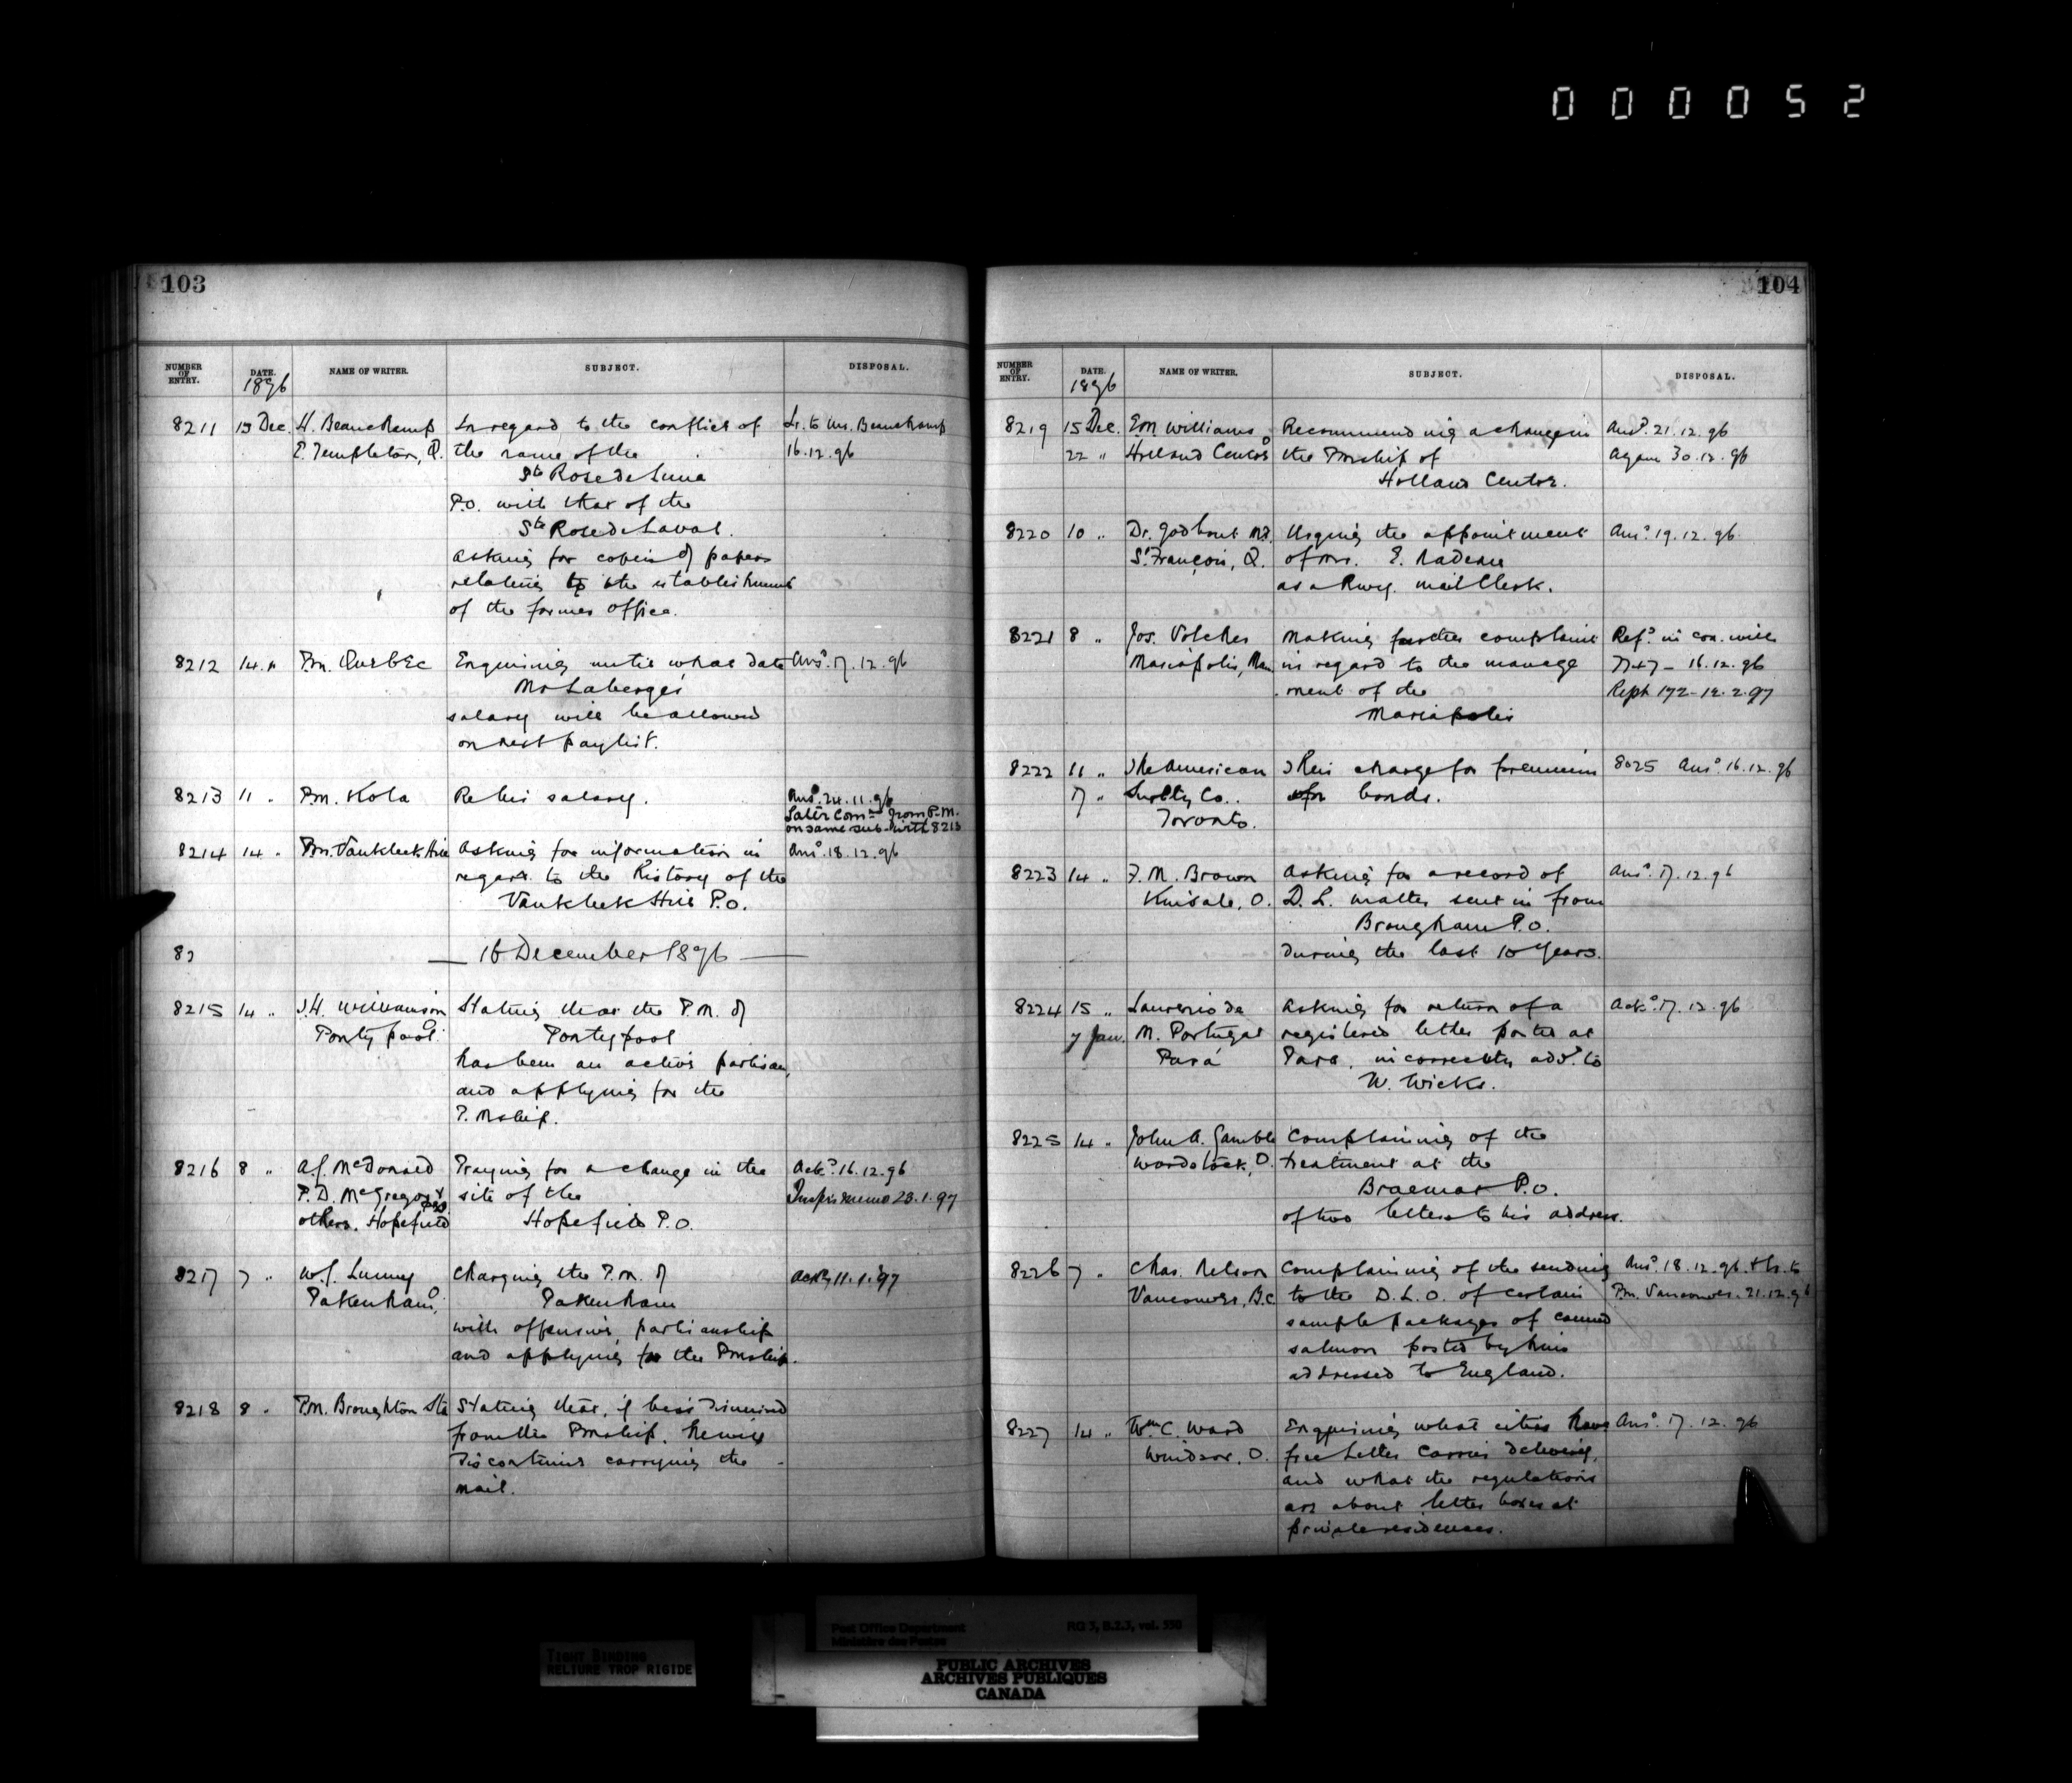 000052
103
NUMBER OF ENTRY.
DATE.
NAME OF WRITER.
SUBJECT.
DISPOSAL.
1896
8211 15 Dec. H. Beauchamp In regard to the conflict of Lr. to Mr. Beauchamp
E. Templeton, Q. the name of the 16.12.96
Ste Rose de Lima
P.O. with that of the
Ste Rose de Laval.
asking for copies of papers
relating to the establishment
of the former office.
8212 14 " Pm. Quebec Enquiring until what date Ansd. 17.12.96
Mr Laberge's
salary will be allowed
on next paylist.
8213 11 " Pm. Kola Re his salary. Ansd. 24.11.96
Later Comn from P.M.
on same sub. with 8213
8214 14 " Pm. Vankleek Hill Asking for information in Ansd. 18.12.96
regard to the history of the
Vankleek Hill P.O.
82 — 16 December 1896 —
8215 14 " J.H. Williamson Stating that the P.M. of
Pontypool O Pontypool
has been an active partisan,
and applying for the
P.Mship.
8216 8 " A.J. McDonald Praying for a change in the Ackd. 16.12.96
P.D. McGregor & site of the Inspr's memo 23.1.97
others. Hopefield PEI Hopefield P.O.
8217 7 " W.J. Lunney Charging the P.M. of Ackd 11.1.97
Pakenham, O Pakenham
with offensive partisanship
and applying for the Pmship.
8218 8 " P.M. Broughton Sta Stating that, if he is dismissed
from the Pmship, he will
discontinue carrying the
mail.
104
NUMBER OF ENTRY.
DATE.
NAME OF WRITER.
SUBJECT.
DISPOSAL.
1896
8219 15 Dec. E.M. Williams Recommending a change in Ansd. 21.12.96
22 " Holland Centre O the Pmship of Again 30.12.96
Holland Centre.
8220 10 " Dr. Godbout M.P. Urging the appointment Ansd. 19.12.96
St. François, Q. of Mr. E. Nadeau
as a Rwy. mail Clerk.
8221 8 " Jos. Making further complaint Refd. in con. with
Mariapolis, Man in regard to the manage 16.12.96
ment of the Reply 172-12.2.97
Mariapolis
8222 11 " The American Their charge for premium 8025 Ansd. 16.12.96
17 " Surety Co. for bonds.
Toronto.
8223 14 " F.M. Brown Asking for a record of Ansd. 17.12.96
Kinsale, O. D.L. matter sent in from
Brougham P.O.
during the last 10 years.
8224 15 " Laurenio de Asking for return of a Ackd. 17.12.96
7 Jan. M. Portugal registered letter posted at
Pará Para, incorrectly add. to
W. Wicks.
8225 14 " John A. Gamble Complaining of the
Woodstock, O. treatment at the
Braemar P.O.
of two letters to his address.
8226 7 " Chas. Nelson Complaining of the sending Ansd. 18.12.96 & lr. to
Vancouver, B.C. to the D.L.O. of certain Pm. Vancouver. 21.12.96
sample packages of canned
salmon posted by him
addressed to England.
8227 14 " Wm. C. Ward Enquiring what cities have Ansd. 17.12.96
Windsor, O. free Letter Carrier delivery,
and what the regulations
are about letter boxes at
private residences.
TIGHT BINDING
RELIURE TROP RIGIDE
Post Office Department
Ministère des Postes
RG 3, B.2.3, vol. 550
PUBLIC ARCHIVES
ARCHIVES PUBLIQUES
CANADA